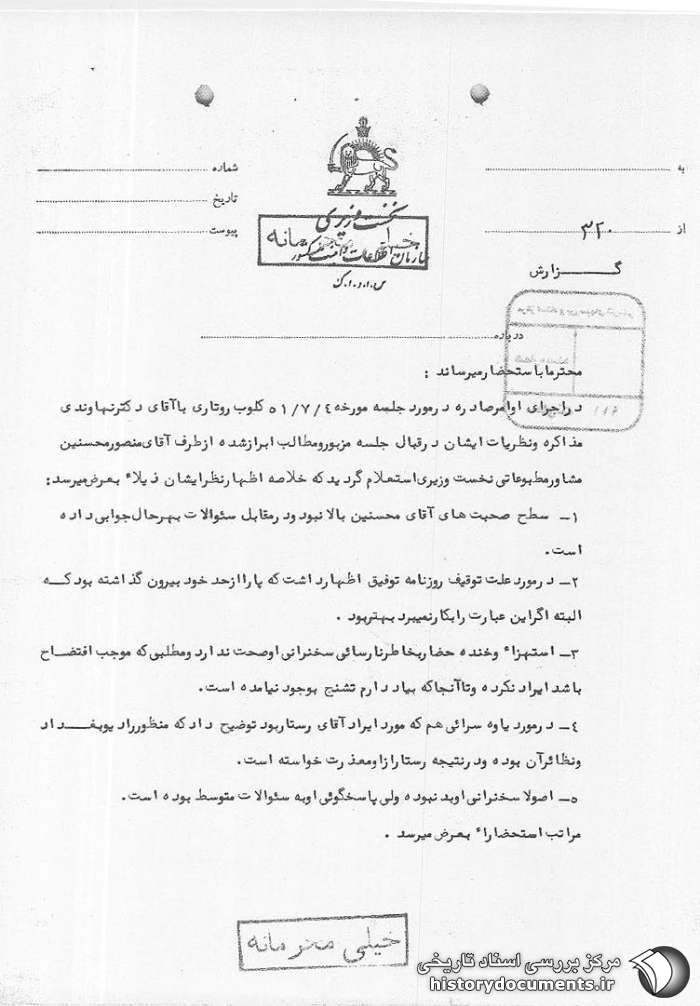 به
شماره
تاریخ
از ۳۲۰
پیوست
نخست وزیری
خیلی محرمانه
سازمان اطلاعات و امنیت کشور
س.ا.و.ا.ک
گزارش
درباره
محترما باستحضار میرساند :
در اجرای اوامر صادره در مورد جلسه مورخه ۵۱/۷/۴ کلوب روتاری با آقای دکتر نهاوندی
مذاکره و نظریات ایشان در قبال جلسه مزبور و مطالب ابراز شده از طرف آقای منصور محسنین
مشاور مطبوعاتی نخست وزیری استعلام گردید که خلاصه اظهار نظر ایشان ذیلاً بعرض میرسد :
۱ـ سطح صحبت های آقای محسنین بالا نبود و در مقابل سئوالات بهرحال جوابی داده
است .
۲ـ در مورد علت توقیف روزنامه توفیق اظهار داشت که پا را از حد خود بیرون گذاشته بود که
البته اگر این عبارت را بکار نمیبرد بهتر بود .
۳ـ استهزاء و خنده حضار بخاطر نارسائی سخنرانی او صحت ندارد و مطلبی که موجب افتضاح
باشد ایراد نکرده و تا آنجا که بیاد دارم تشنج بوجود نیامده است .
۴ـ در مورد یاوه سرائی هم که مورد ایراد آقای رستار بود توضیح داد که منظور رادیو بغداد
و نظائر آن بوده و در نتیجه رستار از او معذرت خواسته است .
۵ـ اصولا سخنرانی او بد نبوده ولی پاسخگوئی او به سئوالات متوسط بوده است .
مراتب استحضاراً بعرض میرسد .
خیلی محرمانه
مرکز بررسی اسناد تاریخی
historydocuments.ir